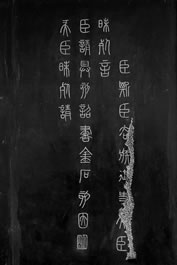 臣斯臣去疾御史夫臣
昧死言
臣請具刻詔書金石刻因
矣臣昧死請